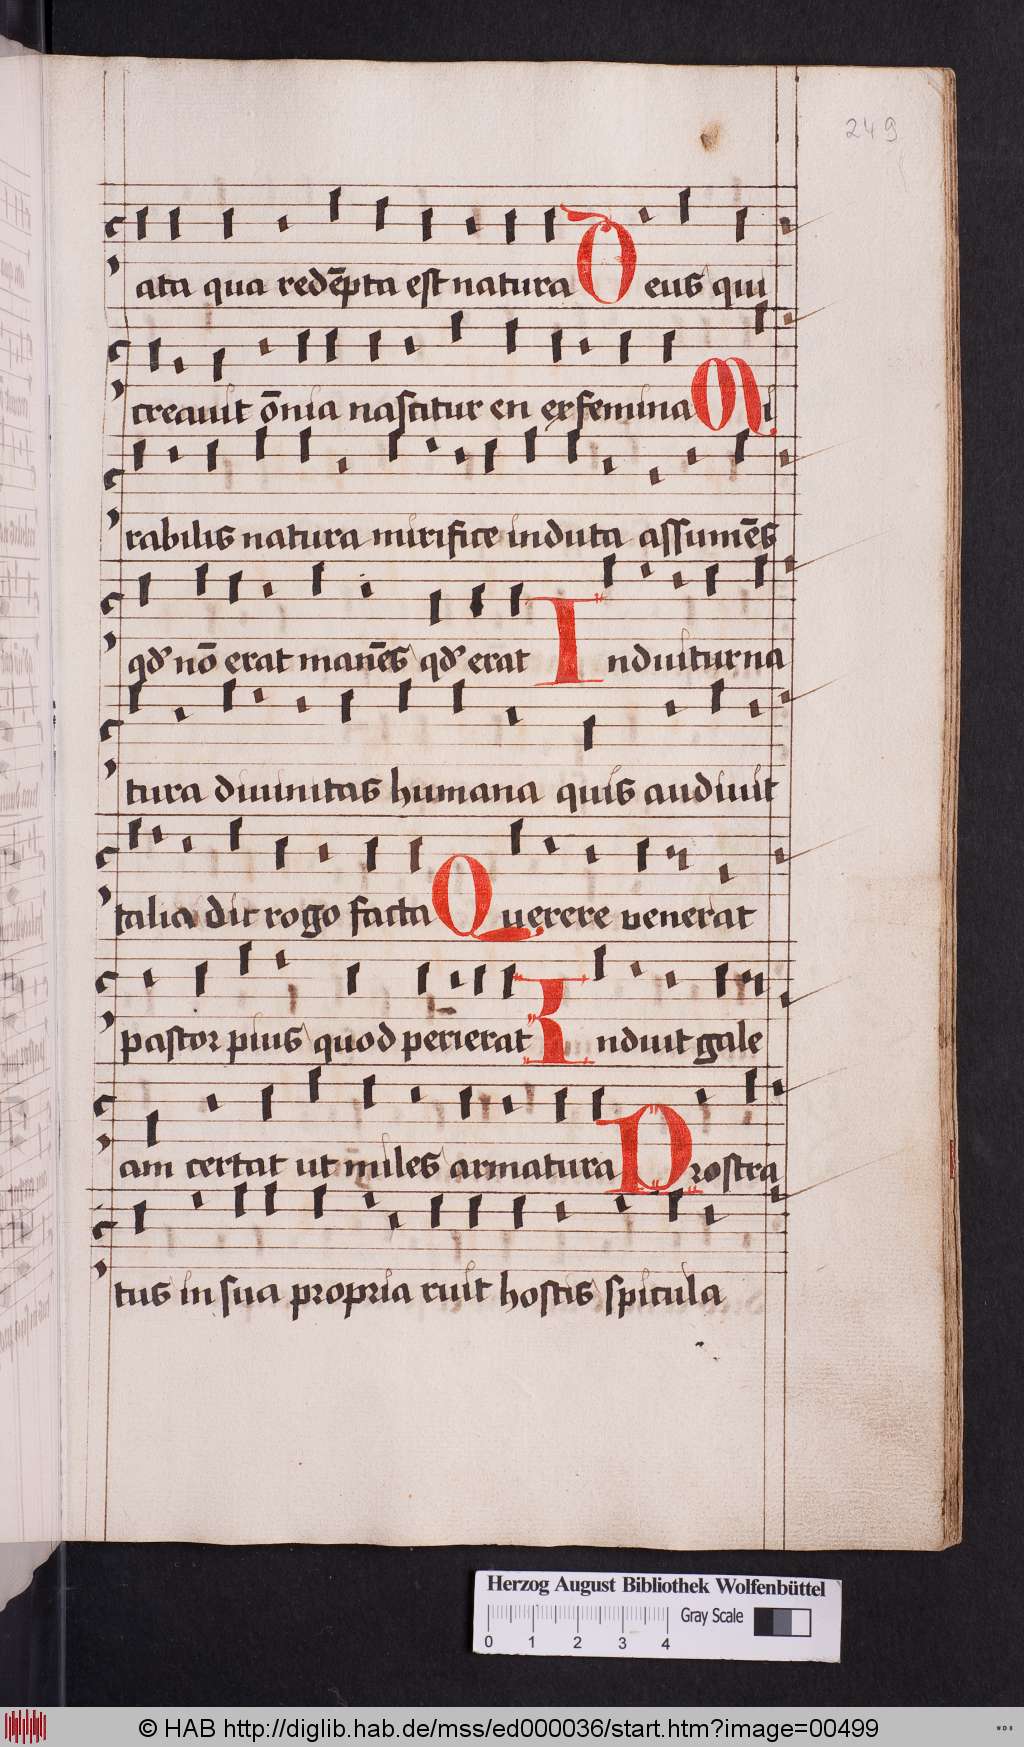 249
ata qua redēpta est natura Deus qui
creauit ōnia nascitur en ex femina Mi
rabilis natura mirifice induta assumēs
qd' nō erat manēs qd' erat Induitur na
tura diuinitas humana quis audiuit
talia dic rogo facta Querere venerat
pastor pius quod perierat Induit gale
am certat ut miles armatura Prostra
tus in sua propria ruit hostis spicula
Herzog August Bibliothek Wolfenbüttel
Gray Scale
0 1 2 3 4
© HAB http://diglib.hab.de/mss/ed000036/start.htm?image=00499